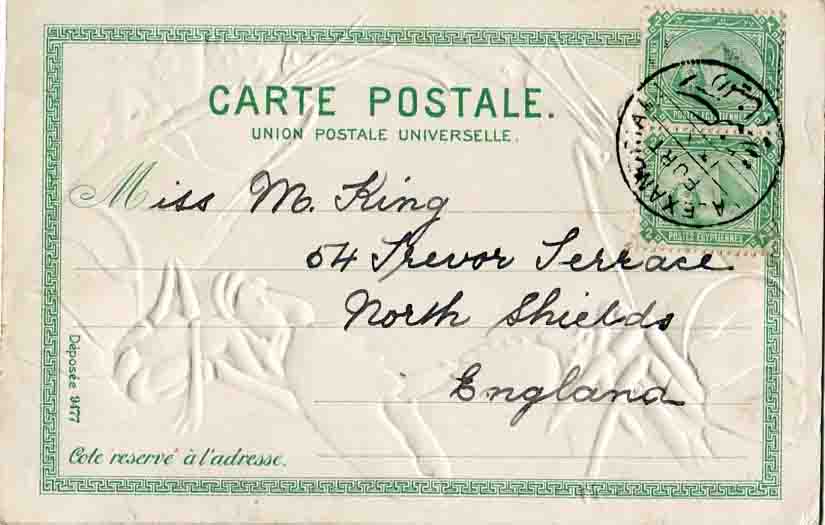 CARTE POSTALE.
UNION POSTALE UNIVERSELLE.
Miss M. King
54 Trevor Terrace
North Shields
England
Déposée 9177
Cote reservé à l'adresse.
POSTES EGYPTIENNES
POSTES EGYPTIENNES
ALEXANDRIA